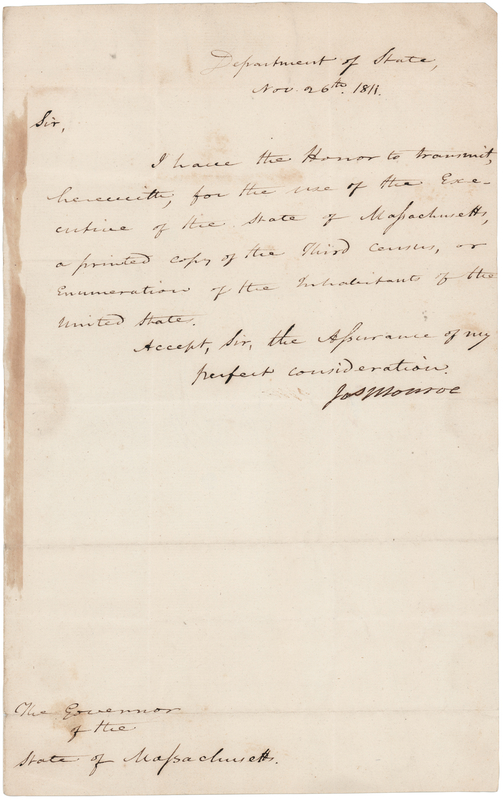 Department of State,
Nov. 26th. 1811.
Sir,
I have the Honor to transmit,
herewith, for the use of the Exe-
cutive of the State of Maſsachusetts,
a printed copy of the Third Census, or
Enumeration of the Inhabitants of the
United State.
Accept, Sir, the Aſsurance of my
perfect consideration.
Jas Monroe
The Governor
of the
State of Maſsachusetts.